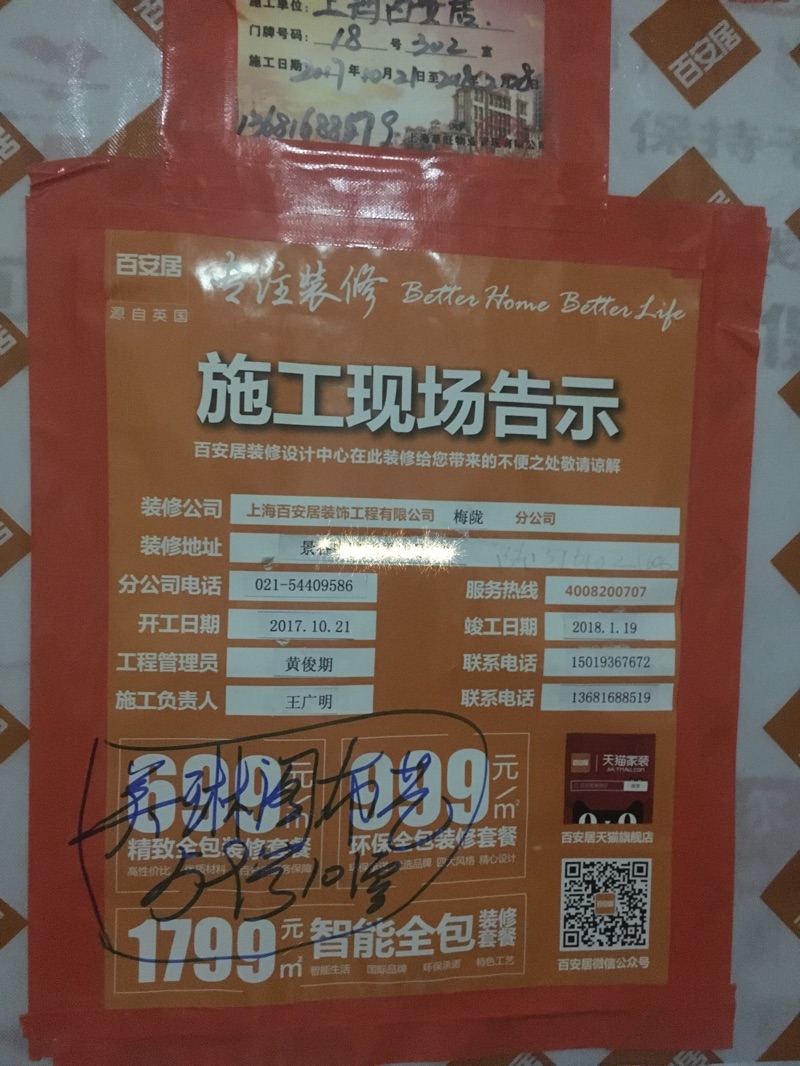 施工单位: 上海百安居.
门牌号码: 18 号 302 室
施工日期 2017年10月21日至2018年2月08日
13681688519
百安居
保持
百安居
源自英国
专注装修 Better Home Better Life
施工现场告示
百安居装修设计中心在此装修给您带来的不便之处敬请谅解
装修公司 上海百安居装饰工程有限公司 梅陇 分公司
装修地址 景
分公司电话 021-54409586 服务热线 4008200707
开工日期 2017.10.21 竣工日期 2018.1.19
工程管理员 黄俊期 联系电话 15019367672
施工负责人 王广明 联系电话 13681688519
699元/㎡ 999元/㎡
精致全包装修套餐 环保全包装修套餐
高性价比 四大风格 精心设计
天猫家装
百安居天猫旗舰店
1799元/㎡ 智能全包装修套餐
智能生活 国际品牌 环保承诺 特色工艺
百安居微信公众号